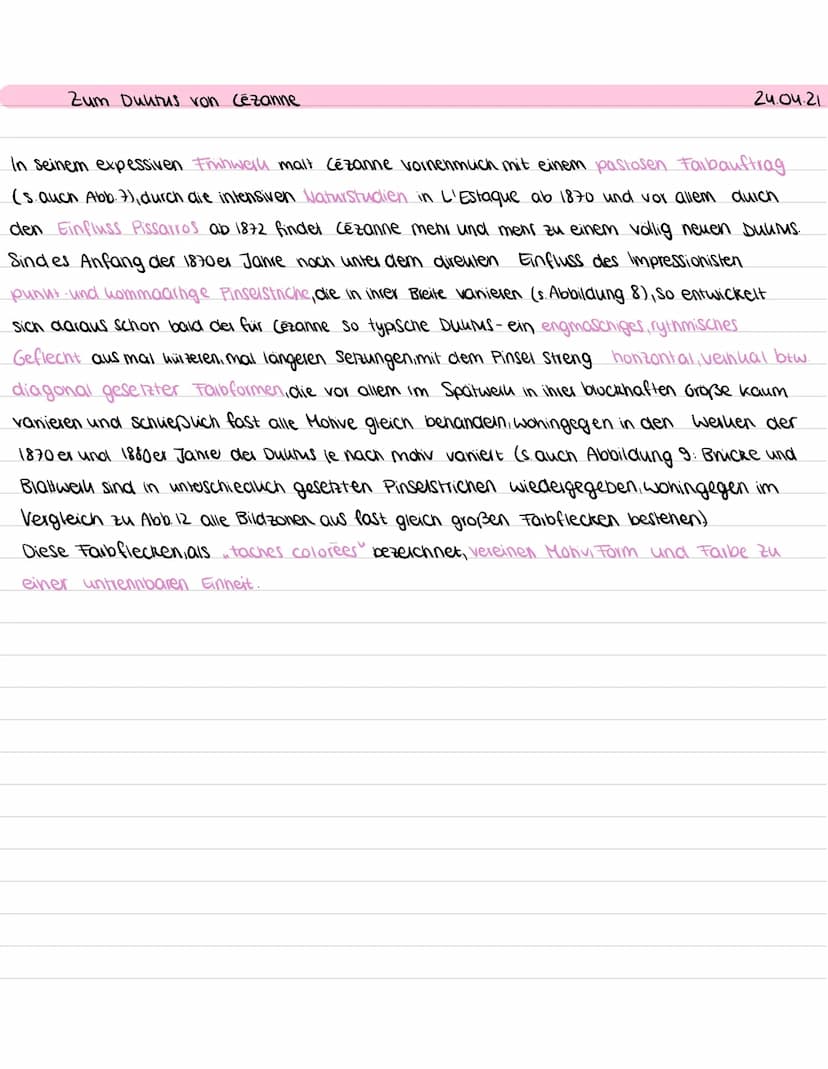 Zum Duktus von Cézanne 24.04.21
In seinem expessiven Frühwerk malt Cézanne vornehmlich mit einem pastosen Farbauftrag
(s. auch Abb. 7), durch die intensiven Naturstudien in L'Estaque ab 1870 und vor allem durch
den Einfluss Pissarros ab 1872 findet Cézanne mehr und mehr zu einem völlig neuen Duktus.
Sind es Anfang der 1870er Jahre noch unter dem direkten Einfluss des Impressionisten
punkt- und kommaartige Pinselstriche, die in ihrer Breite variieren (s. Abbildung 8), so entwickelt
sich daraus schon bald der für Cézanne so typische Duktus - ein engmaschiges, rythmisches
Geflecht aus mal kürzeren, mal längeren Setzungen, mit dem Pinsel streng horizontal, vertikal btw.
diagonal gesetzter Farbformen, die vor allem im Spätwerk in ihrer blockhaften Größe kaum
variieren und schließlich fast alle Motive gleich behandeln, wohingegen in den Werken der
1870er und 1880er Jahre der Duktus je nach Motiv variiert (s. auch Abbildung 9: Brücke und
Blattwerk sind in unterschiedlich gesetzten Pinselstrichen wiedergegeben, wohingegen im
Vergleich zu Abb. 12 alle Bildzonen aus fast gleich großen Farbflecken bestehen)
Diese Farbflecken, als „taches colorées" bezeichnet, vereinen Motiv, Form und Farbe zu
einer untrennbaren Einheit.